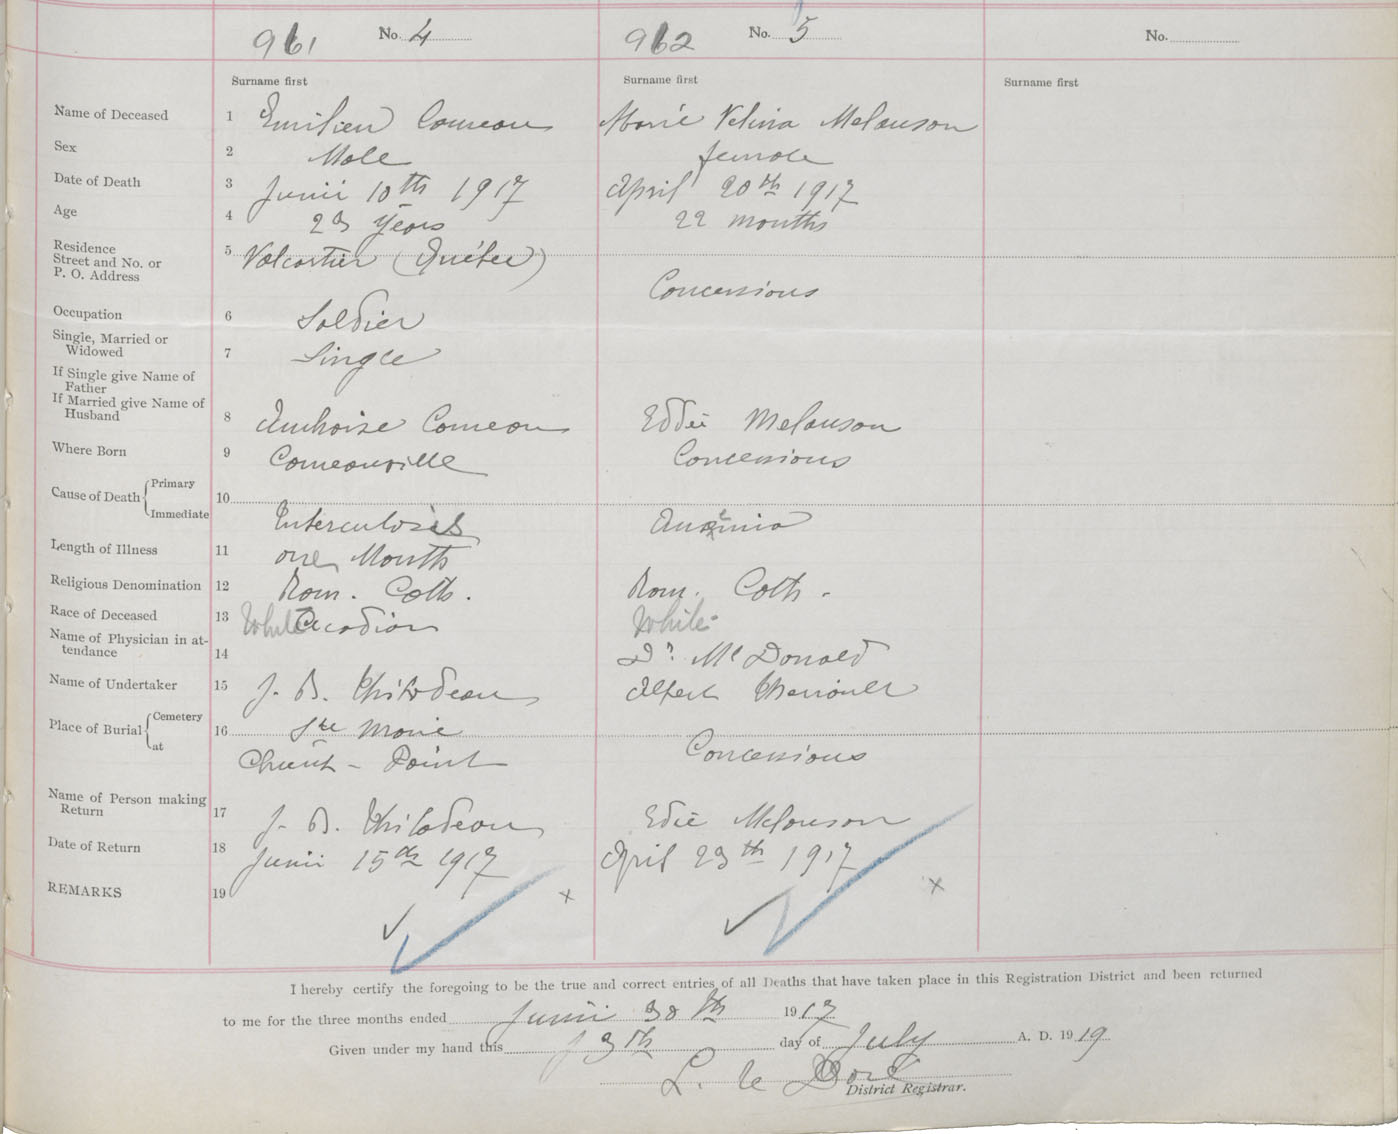 961 No. 4
962 No. 5
No.
Surname first
Surname first
Surname first
Name of Deceased 1 Emilien Comeau Marie Velina Melanson
Sex 2 Male female
Date of Death 3 Junii 10th 1917 April 20th 1917
Age 4 23 years 22 months
Residence
Street and No. or
P. O. Address
5 Valcartier (Québec) Concessions
Occupation 6 Soldier
Single, Married or
Widowed
7 Single
If Single give Name of
Father
If Married give Name of
Husband
8 Ambroise Comeau Eddie Melanson
Where Born 9 Comeauville Concessions
Cause of Death Primary
Immediate
10 Tuberculosis
Length of Illness 11 one Month
Religious Denomination 12 Rom. Cath. Rom. Cath.
Race of Deceased 13 White Acadian White
Name of Physician in at-
tendance
14 Dr. Mc Donald
Name of Undertaker 15 J. B. Thibodeau Albert Therriault
Place of Burial Cemetery
at
16 Ste Marie
Church-Point Concessions
Name of Person making
Return
17 J. B. Thibodeau Edie Melanson
Date of Return 18 Junii 15th 1917 April 23th 1917
REMARKS 19
I hereby certify the foregoing to be the true and correct entries of all Deaths that have taken place in this Registration District and been returned
to me for the three months ended Junii 30th 1917
Given under my hand this 3th day of July A. D. 1919
District Registrar.